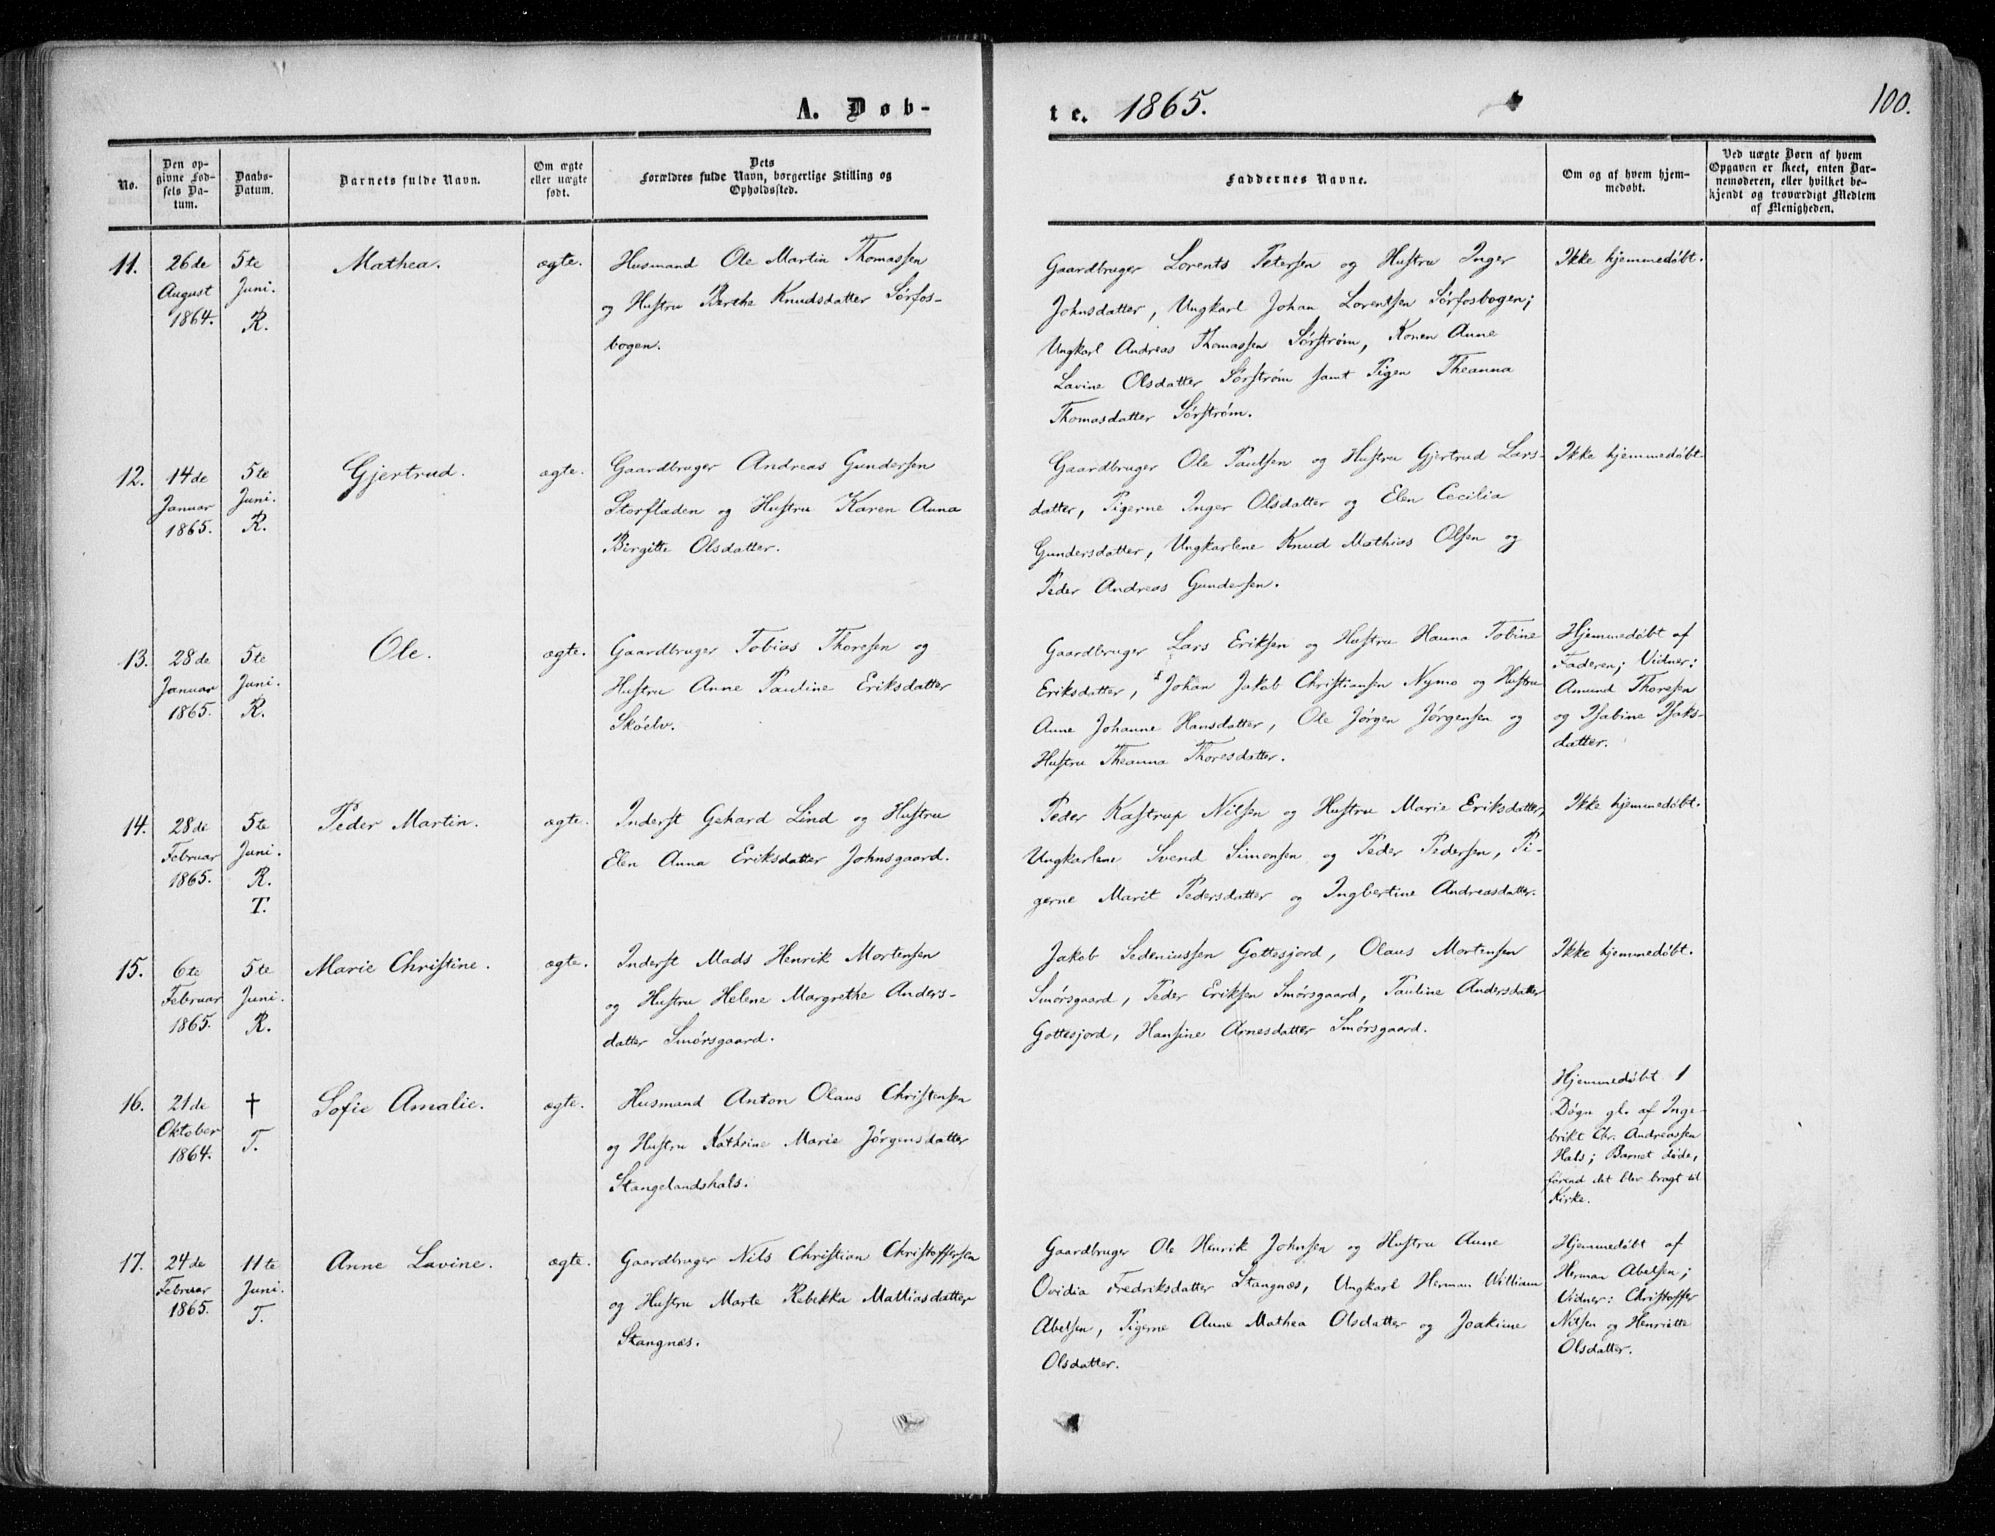 A. Døb-
te. 1865.
100.
No.
Den op-
givne Fød-
sels Da-
tum.
Daabs-
Datum.
Barnets fulde Navn.
Om ægte
eller uægte
født.
Dets
Forældres fulde Navn, borgerlige Stilling og
Opholdssted.
Faddernes Navne.
Om og af hvem hjem-
medøbt.
Ved uægte Børn af hvem
Opgaven er skeet, enten Bar-
nemoderen, eller hvilket be-
kjendt og troværdigt Medlem
af Menigheden.
11.
26de
August
1864.
5te
Juni.
R.
Mathea.
ægte.
Husmand Ole Martin Thomassen
og Hustru Berthe Knudsdatter Sørfos-
bogen.
Gaardbruger Lorents Petersen og Hustru Inger
Johnsdatter, Ungkarl Johan Lorentsen Sørfosbogen;
Ungkarl Andreas Thomassen Sørstrøm, Konen Anne
Lavine Olsdatter Sørstrøm samt Pigen Theanna
Thomasdatter Sørstrøm.
Ikke hjemmedøbt.
12.
14de
Januar
1865.
5te
Juni.
R.
Gjertrud.
ægte.
Gaardbruger Andreas Gundersen
Storfladen og Hustru Karen Anna
Birgitte Olsdatter.
Gaardbruger Ole Paulsen og Hustru Gjertrud Lars-
datter, Pigerne Inger Olsdatter og Elen Cecilia
Gundersdatter, Ungkarlene Knud Mathias Olsen og
Peder Andreas Gundersen.
Ikke hjemmedøbt
13.
28de
Januar
1865.
5te
Juni.
R.
Ole.
ægte.
Gaardbruger Tobias Thoresen og
Hustru Anne Pauline Eriksdatter
Skøelv.
Gaardbruger Lars Eriksen og Hustru Hanna Tobine
Eriksdatter, Johan Jakob Christiansen Nymo og Hustru
Anne Johanne Hansdatter, Ole Jørgen Jørgensen og
Hustru Theanna Thoresdatter.
Hjemmedøbt af
Faderen; Vidner:
Amund Thoresen
og Isabine Isaks-
datter.
14.
28de
Februar
1865.
5te
Juni.
R.
T.
Peder Martin.
ægte.
Inderst Gehard Lind og Hustru
Elen Anna Eriksdatter Johnsgaard.
Peder Kastrup Nilsen og Hustru Marie Eriksdatter,
Ungkarlene Svend Simonsen og Peder Pedersen, Pi-
gerne Marit Pedersdatter og Ingbertine Andreasdatter.
Ikke hjemmedøbt.
15.
6te
Februar
1865.
5te
Juni.
R.
Marie Christine.
ægte.
Inderst Mads Henrik Mortensen
og Hustru Helene Margrethe Anders-
datter Smørsgaard.
Jakob Sedeniussen Gottesjord, Olaus Mortensen
Smørsgaard, Peder Eriksen Smørsgaard, Pauline Andersdatter
Gottesjord, Hansine Arnesdatter Smørsgaard.
Ikke hjemmedøbt.
16.
21de
Oktober
1864.
†
T.
Sofie Amalie.
ægte.
Husmand Anton Olaus Christensen
og Hustru Kathrine Marie Jørgensdatter
Stangelandshals.
Hjemmedøbt 1
Døgn gl. af Inge-
brikt Chr. Andreassen
Hals; Barnet døde,
førend det blev bragt til
Kirke.
17.
24de
Februar
1865.
11te
Juni.
T.
Anne Lavine.
ægte.
Gaardbruger Nils Christian Christoffersen
og Hustru Marte Rebekka Mathiasdatter
Stangnæs.
Gaardbruger Ole Henrik Johnsen og Hustru Anne
Ovidia Fredriksdatter Stangnæs, Ungkarl Herman William
Abelsen, Pigerne Anne Mathea Olsdatter og Joakime
Olsdatter.
Hjemmedøbt af
Herman Abelsen;
Vidner: Christoffer
Nilsen og Henriette
Olsdatter.